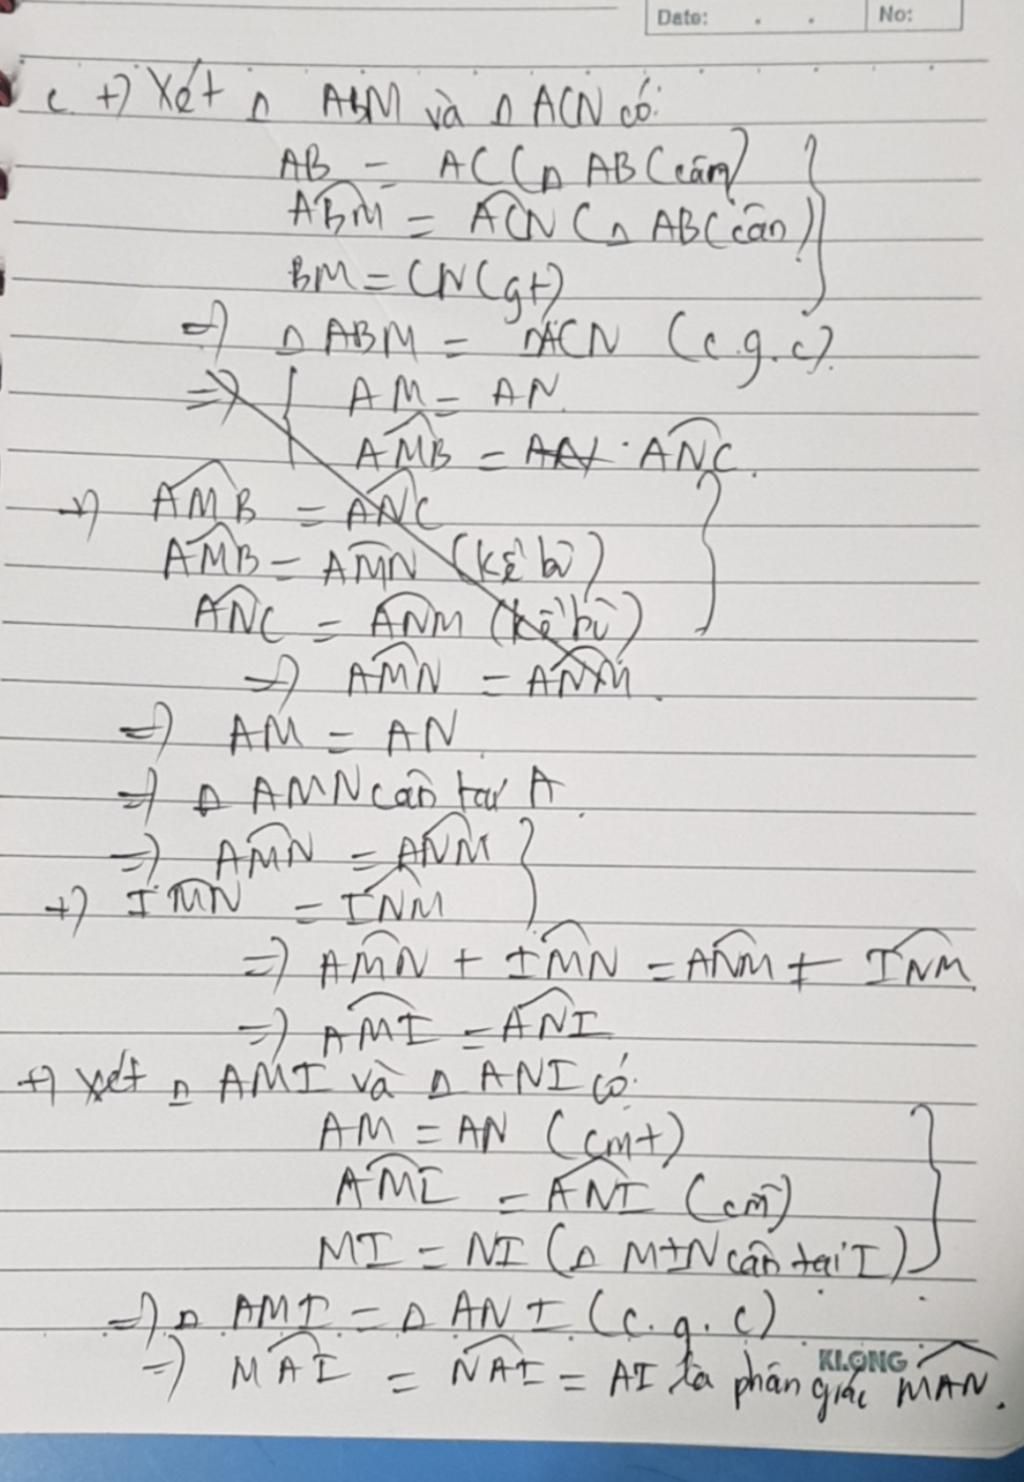 Date: . . No:
c +) Xét Δ ABM và Δ ACN có:
AB = AC (Δ ABC cân)
ABM = ACN (Δ ABC cân)
BM = CN (gt)
=> Δ ABM = ΔACN (c.g.c).
=> { AM = AN.
AMB = AN . ANC.
+) AMB = ANC
AMB = AMN (kề bù)
ANC = ANM (kề bù)
=> AMN = ANM.
=> AM = AN.
=> Δ AMN cân tại A.
=> AMN = ANM
+) IMN = INM
=> AMN + IMN = ANM + INM.
=> AMI = ANI
+) Xét Δ AMI và Δ ANI có:
AM = AN (cmt)
AMI = ANI (cmt)
MI = NI (Δ MIN cân tại I)
=> Δ AMI = Δ ANI (c.g.c)
KLONG
=> MAI = NAI = AI là phân giác MAN.